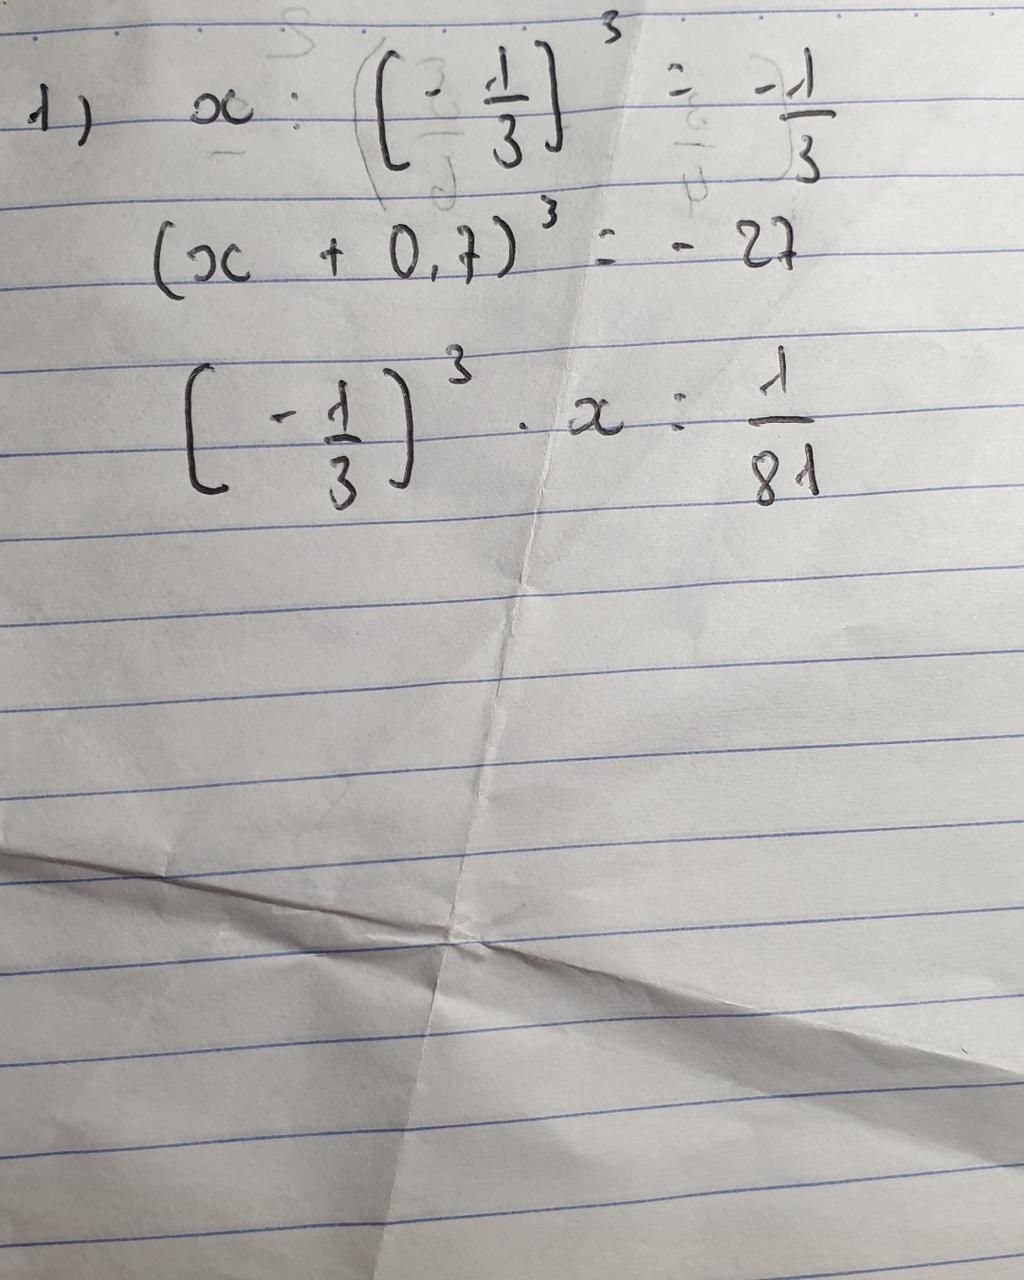 1) x : [- 1/3]³ = -1/3
(x + 0,7)³ = - 27
[- 1/3]³ . x = 1/81